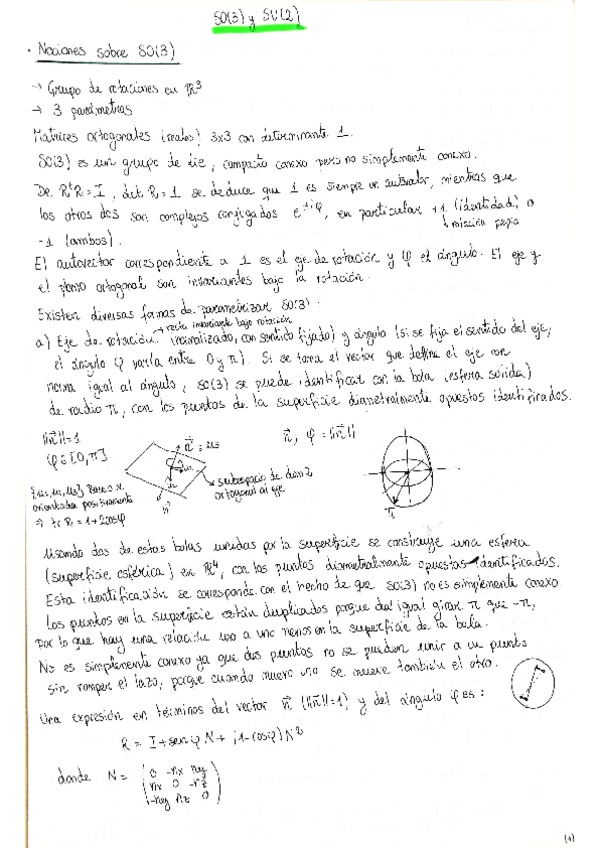 SO(3) y SU(2)
· Nociones sobre SO(3)
→ Grupo de rotaciones en ℝ³
→ 3 parámetros
Matrices ortogonales (reales) 3x3 con determinante 1.
SO(3) es un grupo de Lie, compacto conexo pero no simplemente conexo.
De RᵗR = I, det R = 1 se deduce que 1 es siempre un autovalor, mientras que
los otros dos son complejos conjugados e^±iφ, en particular +1 (identidad) o
-1 (ambos).
El autovector correspondiente a 1 es el eje de rotación y φ el ángulo. El eje y
el plano ortogonal son invariantes bajo la rotación.
Existen diversas formas de parametrizar SO(3):
recta invariante bajo rotación
a) Eje de rotación (normalizado, con sentido fijado) y ángulo (si se fija el sentido del eje,
el ángulo φ varía entre 0 y π). Si se toma el vector que define el eje con
norma igual al ángulo, SO(3) se puede identificar con la bola (esfera sólida)
de radio π, con los puntos de la superficie diametralmente opuestos identificados.
||n⃗||=1
φ∈[0,π]
n⃗ = u₃
n⃗, φ = ||n⃗||
subespacio de dim 2
ortogonal al eje
π
{u₁, u₂, u₃} Base o.n.
orientada positivamente
⇒ tr R = 1+2cosφ
Usando dos de estas bolas unidas por la superficie se construye una esfera
(superficie esférica) en ℝ⁴, con los puntos diametralmente opuestos identificados.
Esta identificación se corresponde con el hecho de que SO(3) no es simplemente conexo.
Los puntos en la superficie están duplicados porque da igual girar π que -π,
por lo que hay una relación uno a uno menos en la superficie de la bola.
No es simplemente conexo ya que dos puntos no se pueden unir a un punto
sin romper el lazo, porque cuando muevo uno se mueve también el otro.
Una expresión en términos del vector n⃗ (||n⃗||=1) y del ángulo φ es:
R = I + senφ N + (1-cosφ)N²
donde N = ( 0 -nx ny
nx 0 -nz
-ny nz 0 )
(1)